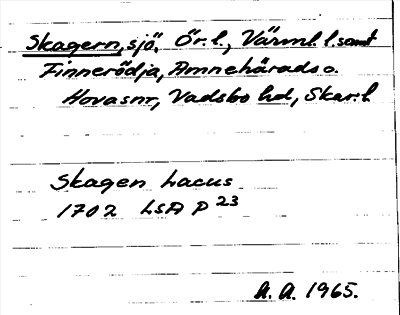 Skagern, sjö, Ör. l., Värml. l. samt
Finnerödja, Amnehärads o.
Hovasnr, Vadsbo hd, Skar. l.
Skagen Lacus
1702 LSA P 23
A. A. 1965.